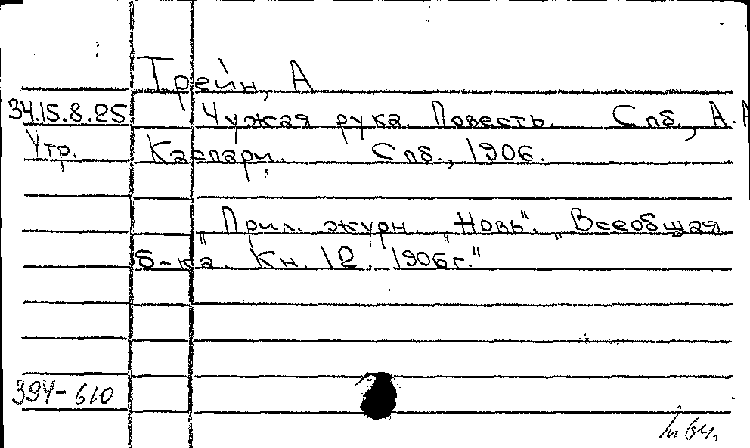 Трейн, А
34.15.8.25 Чужая рука. Повесть. Спб., А.
Утр. Каспари. Спб., 1906.
„Прил. журн „Новь". „Всеобщая
б-ка. Кн. 12. 1906г."
394-610